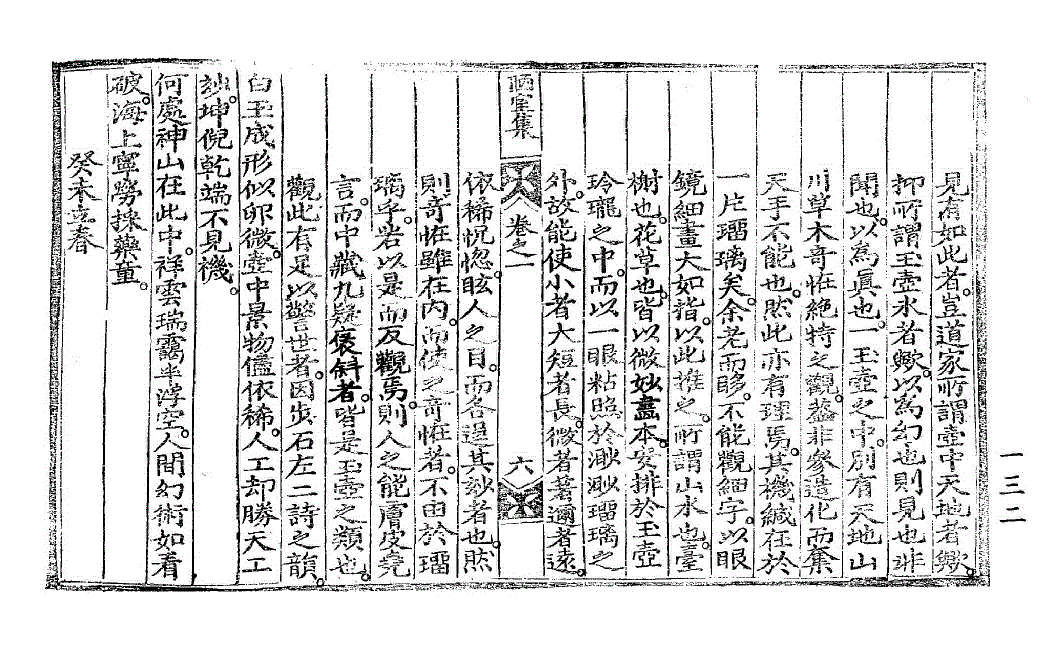 見有如此者。豈道家所謂壺中天地者歟。
抑所謂玉壺氷者歟。以爲幻也則見也。非
聞也。以爲眞也。一玉壺之中。別有天地山
川草木奇恠絶特之觀。盖非參造化而奪
天手不能也。然此亦有理焉。其機緘在於
一片瑠璃矣。余老而眵。不能觀細字。以眼
鏡細畫大如指。以此推之。所謂山水也。臺
榭也。花草也。皆以微妙畫本。安排於玉壺
玲瓏之中。而以一眼粘照於渺渺瑠璃之
外。故能使小者大短者長。微者著邇者遠。
陋室集 卷之一 六
依稀怳惚。眩人之目。而各逞其妙者也。然
則奇恠雖在內。而使之奇恠者。不由於瑠
璃乎。若以是而反觀焉。則人之能膚皮堯
言。而中藏九疑褒斜者。皆是玉壺之類也。
觀此有足以警世者。因步石左二詩之韻。
白玉成形似卵微。壺中景物儘依稀。人工却勝天工
玅。坤倪乾端不見機。
何處神山在此中。祥雲瑞靄半浮空。人間幻術如看
破。海上寧勞採藥童。
癸未立春
一三二